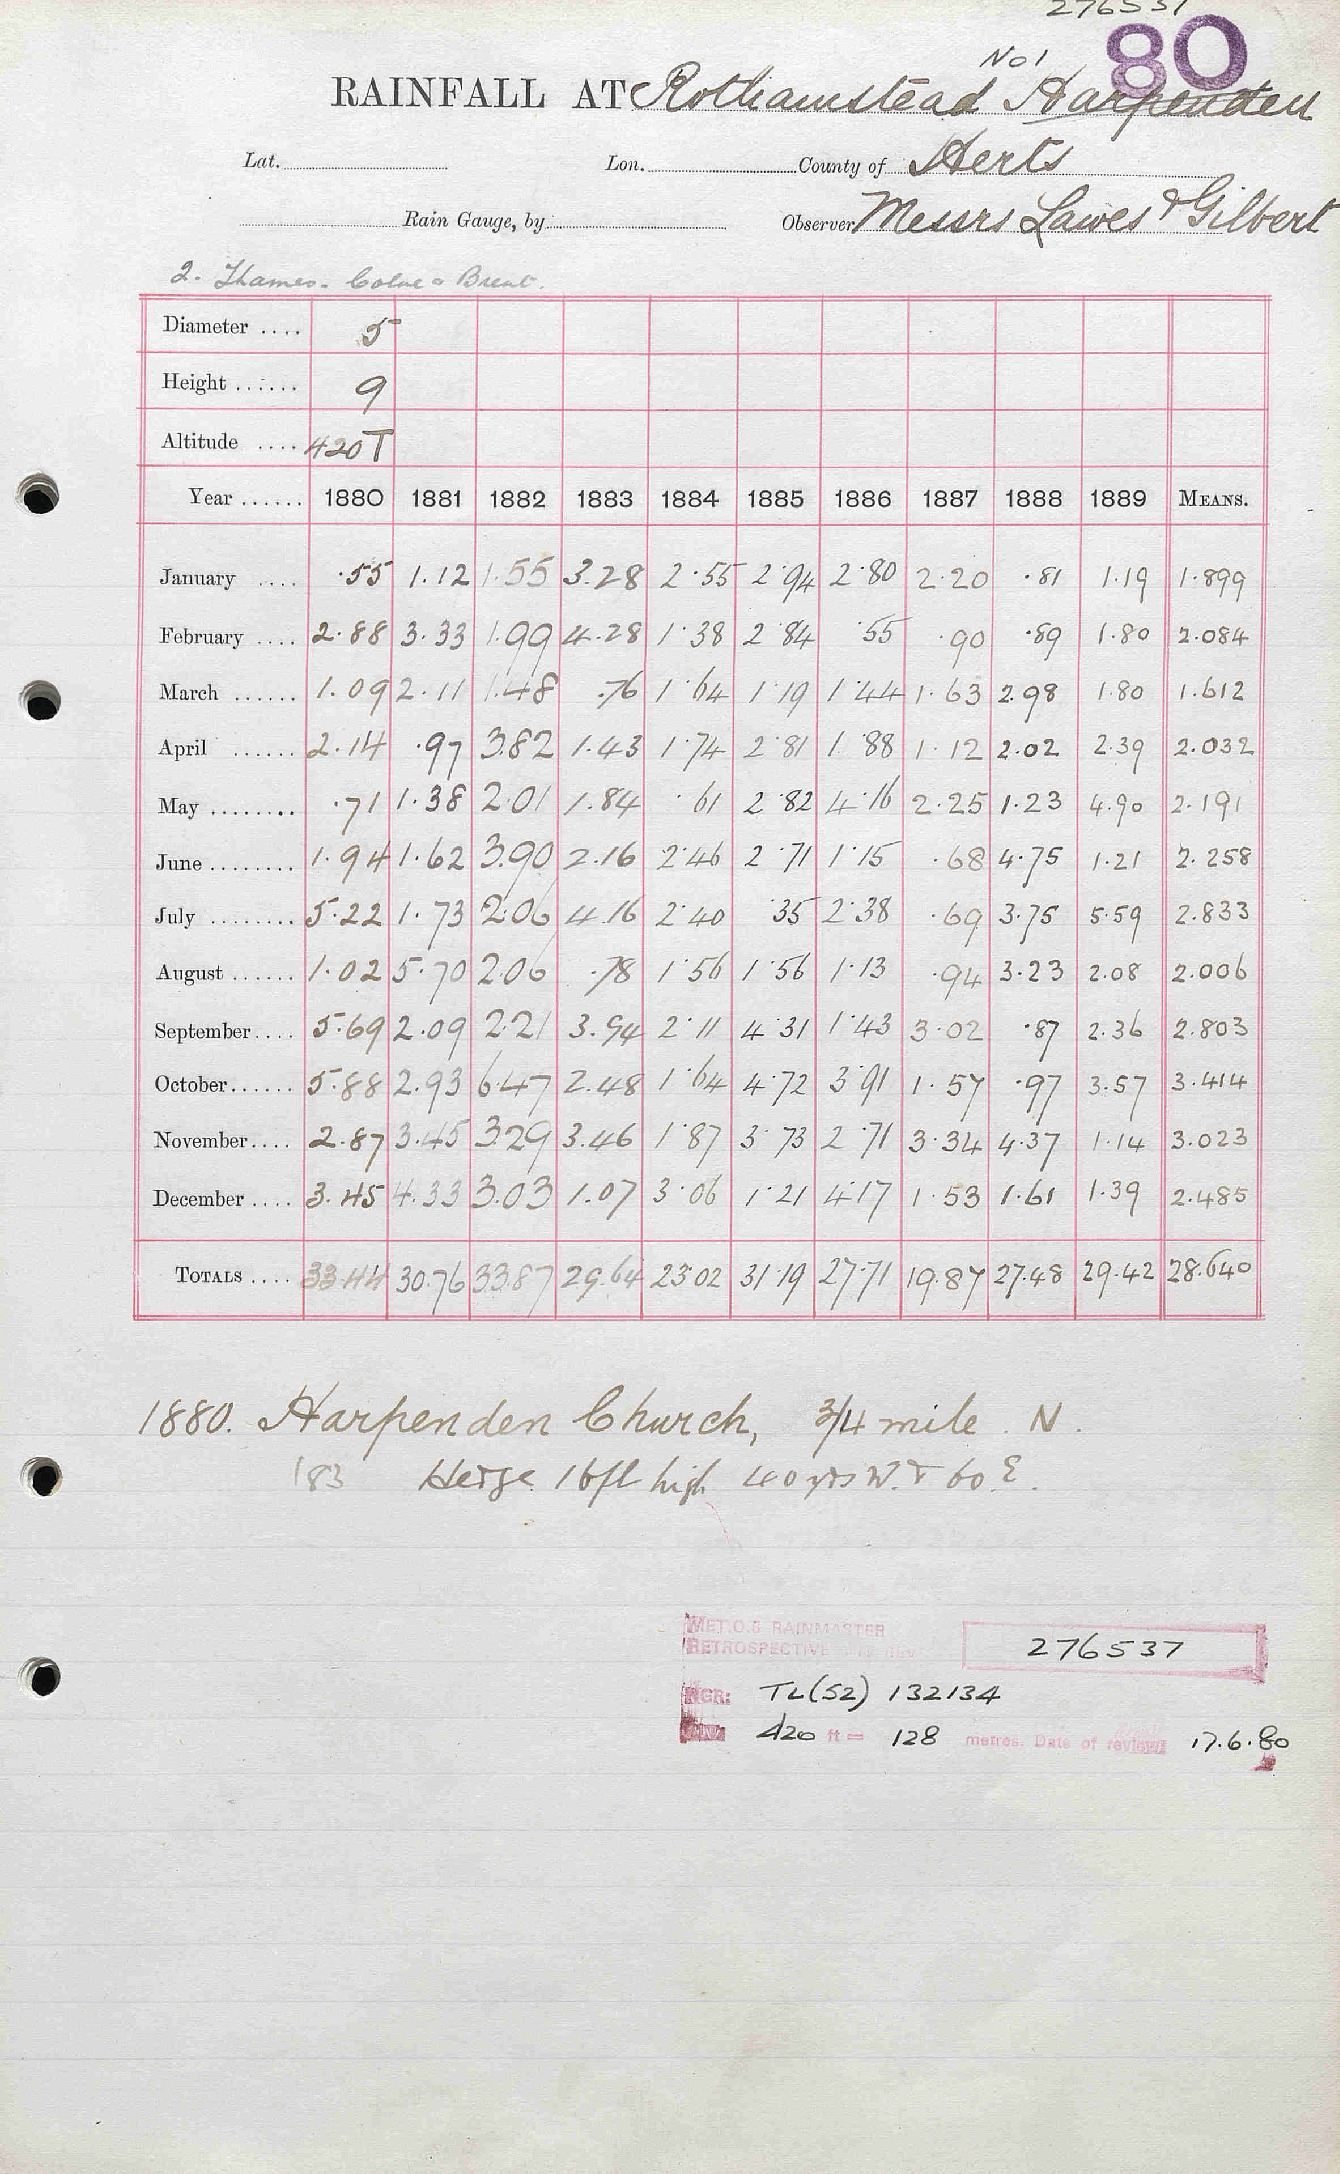 276537
No 1
80
RAINFALL AT Rothamstead Harpenden
Lat. Lon. County of Herts
Rain Gauge, by Observer Messrs Lawes & Gilbert
2. Thames. Colne & Brent.
Diameter .... 5
Height ...... 9
Altitude .... 420 T
Year ...... 1880 1881 1882 1883 1884 1885 1886 1887 1888 1889 MEANS.
January .... .55 1.12 1.55 3.28 2.55 2.94 2.80 2.20 .81 1.19 1.899
February .... 2.88 3.33 1.99 4.28 1.38 2.84 .55 .90 .89 1.80 2.084
March ...... 1.09 2.11 1.48 .76 1.64 1.19 1.44 1.63 2.98 1.80 1.612
April ...... 2.14 .97 3.82 1.43 1.74 2.81 1.88 1.12 2.02 2.39 2.032
May ........ .71 1.38 2.01 1.84 .61 2.82 4.16 2.25 1.23 4.90 2.191
June ........ 1.94 1.62 3.90 2.16 2.46 2.71 1.15 .68 4.75 1.21 2.258
July ........ 5.22 1.73 2.06 4.16 2.40 .35 2.38 .69 3.75 5.59 2.833
August ...... 1.02 5.70 2.06 .78 1.56 1.56 1.13 .94 3.23 2.08 2.006
September.... 5.69 2.09 2.21 3.94 2.11 4.31 1.43 3.02 .87 2.36 2.803
October...... 5.88 2.93 6.47 2.48 1.64 4.72 3.91 1.57 .97 3.57 3.414
November.... 2.87 3.45 3.29 3.46 1.87 3.73 2.71 3.34 4.37 1.14 3.023
December .... 3.45 4.33 3.03 1.07 3.06 1.21 4.17 1.53 1.61 1.39 2.485
TOTALS .... 33.44 30.76 33.87 29.64 23.02 31.19 27.71 19.87 27.48 29.42 28.640
1880. Harpenden Church, 3/4 mile N.
183 Hedge 16ft high 40 yds W. & 60 E.
MET.O.8 RAINMASTER
RETROSPECTIVE 276537
NGR: TL(52) 132134
420 ft = 128 metres. Date of review 17.6.80